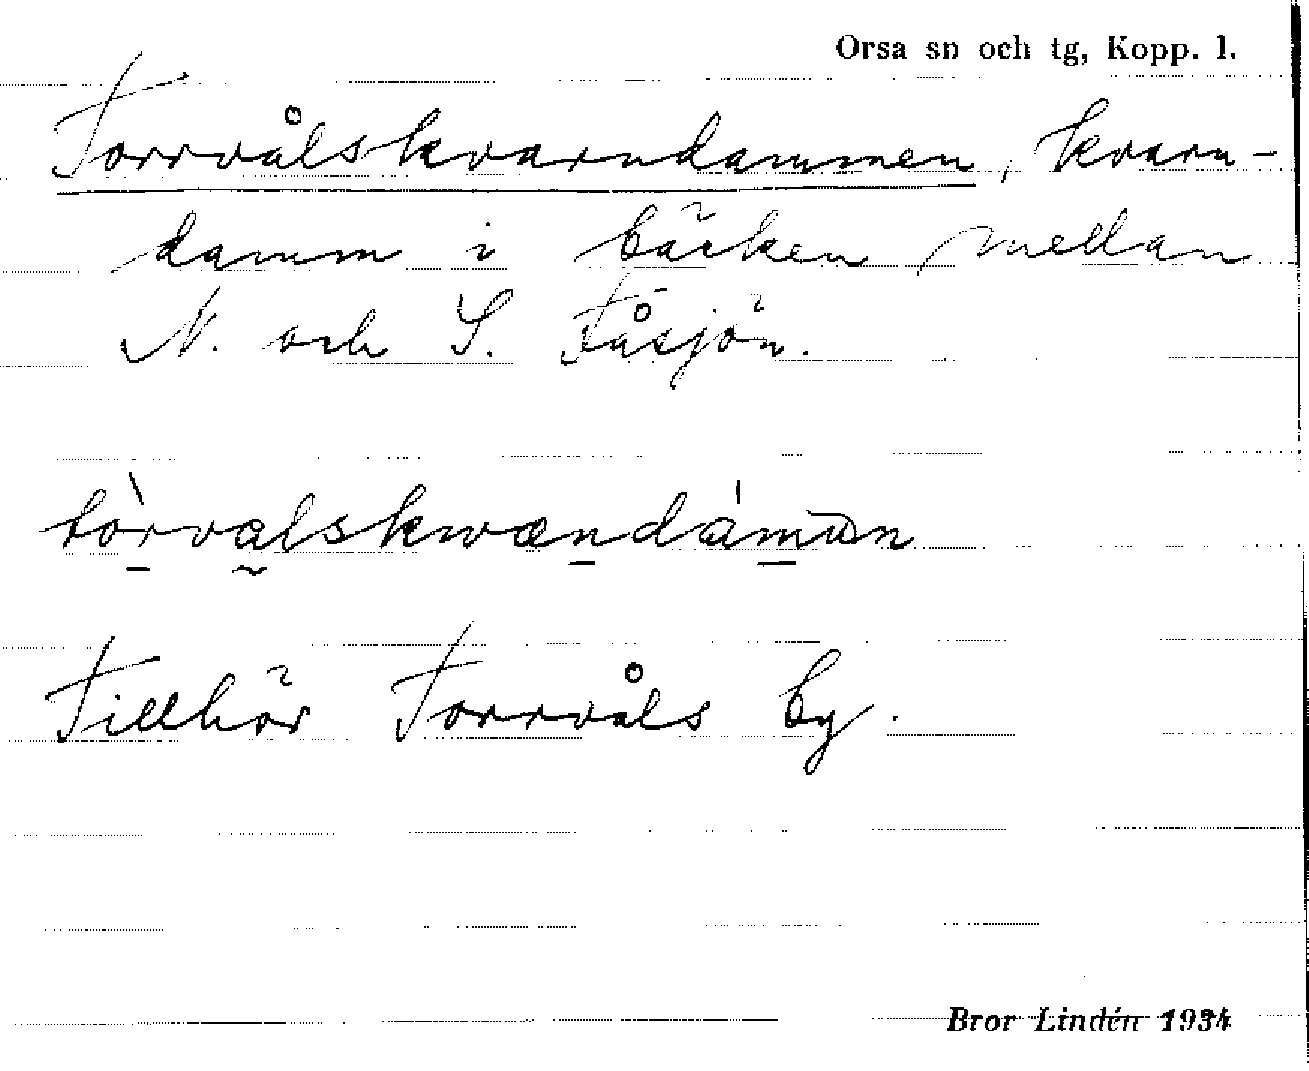 Orsa sn och tg, Kopp. l.
Torrvålskvarndammen, kvarn-
damm i bäcken mellan
N. och S. Tåsjön.
tòrvalskwændámən
Tillhör Torrvåls by.
Bror Lindén 1934